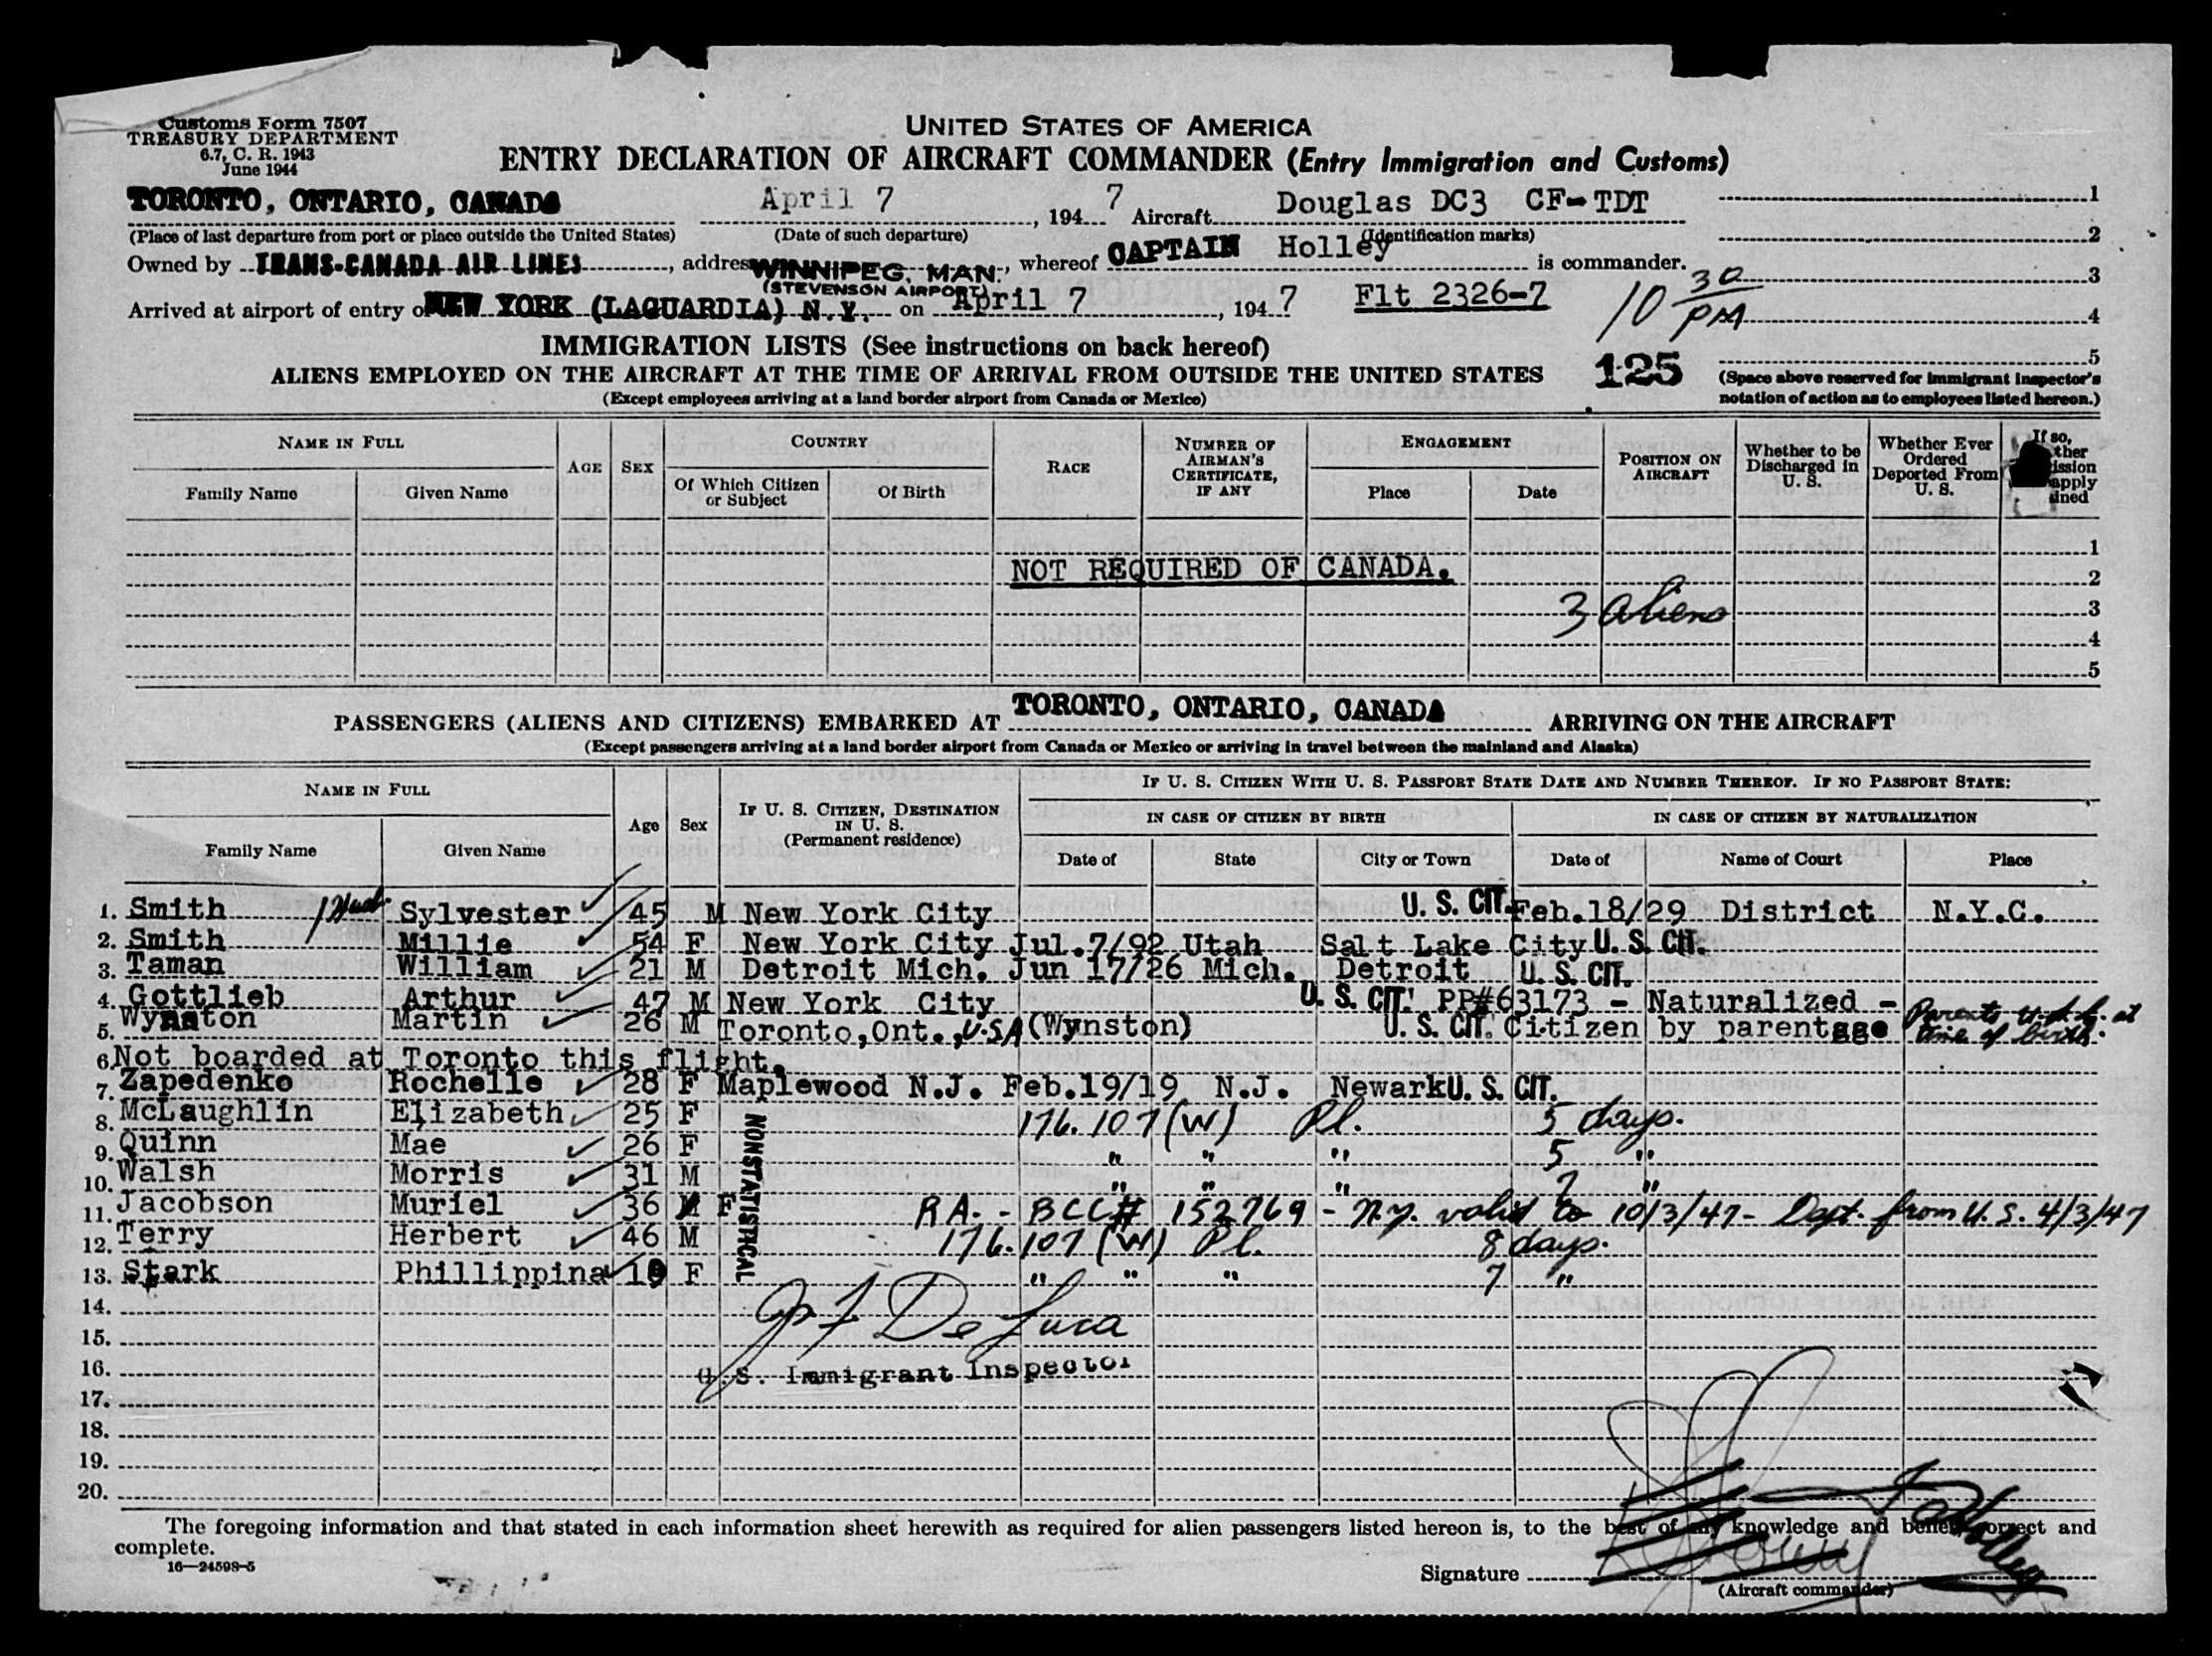 Customs Form 7507
TREASURY DEPARTMENT
6.7, C. R. 1943
June 1944
UNITED STATES OF AMERICA
ENTRY DECLARATION OF AIRCRAFT COMMANDER (Entry Immigration and Customs)
TORONTO, ONTARIO, CANADA April 7, 194 7 Aircraft Douglas DC3 CF-TDT 1
(Place of last departure from port or place outside the United States) (Date of such departure) (Identification marks) 2
Owned by TRANS-CANADA AIR LINES, address WINNIPEG, MAN., whereof CAPTAIN Holley is commander. 3
(STEVENSON AIRPORT)
Arrived at airport of entry of NEW YORK (LAGUARDIA) N.Y. on April 7, 194 7 Flt 2326-7 10 30 PM 4
IMMIGRATION LISTS (See instructions on back hereof) 5
ALIENS EMPLOYED ON THE AIRCRAFT AT THE TIME OF ARRIVAL FROM OUTSIDE THE UNITED STATES 125 (Space above reserved for immigrant inspector's
(Except employees arriving at a land border airport from Canada or Mexico) notation of action as to employees listed hereon.)
NAME IN FULL AGE SEX COUNTRY RACE NUMBER OF AIRMAN'S CERTIFICATE, IF ANY ENGAGEMENT POSITION ON AIRCRAFT Whether to be Discharged in U. S. Whether Ever Ordered Deported From U. S. If so,
Family Name Given Name Of Which Citizen or Subject Of Birth Place Date
1
NOT REQUIRED OF CANADA. 2
3 aliens 3
4
5
PASSENGERS (ALIENS AND CITIZENS) EMBARKED AT TORONTO, ONTARIO, CANADA ARRIVING ON THE AIRCRAFT
(Except passengers arriving at a land border airport from Canada or Mexico or arriving in travel between the mainland and Alaska)
NAME IN FULL Age Sex IF U. S. CITIZEN, DESTINATION IN U. S. (Permanent residence) IF U. S. CITIZEN WITH U. S. PASSPORT STATE DATE AND NUMBER THEREOF. IF NO PASSPORT STATE:
IN CASE OF CITIZEN BY BIRTH IN CASE OF CITIZEN BY NATURALIZATION
Family Name Given Name Date of State City or Town Date of Name of Court Place
1. Smith Sylvester 45 M New York City U. S. CIT. Feb.18/29 District N.Y.C.
2. Smith Millie 54 F New York City Jul.7/92 Utah Salt Lake City U. S. CIT.
3. Taman William 21 M Detroit Mich. Jun 17/26 Mich. Detroit U. S. CIT.
4. Gottlieb Arthur 47 M New York City U. S. CIT. PP#63173 - Naturalized -
5. Wynston Martin 26 M Toronto,Ont., U.S.A (Wynston) U. S. CIT. Citizen by parentage Parents U.S.C. at time of birth.
6. Not boarded at Toronto this flight.
7. Zapedenko Rochelle 28 F Maplewood N.J. Feb.19/19 N.J. Newark U. S. CIT.
8. McLaughlin Elizabeth 25 F 176.107 (W) Pl. 5 days.
9. Quinn Mae 26 F " " " 5 "
10. Walsh Morris 31 M " " " "
11. Jacobson Muriel 36 F R.A. - BCC# 152769 - N.Y. valid to 10/3/47 - Dept. from U.S. 4/3/47
12. Terry Herbert 46 M 176.107 (W) Pl. 8 days.
13. Stark Phillippina F " " " 7 "
NONSTATISTICAL
14.
15. De Luca
16. U.S. Immigrant Inspector
17.
18.
19.
20.
The foregoing information and that stated in each information sheet herewith as required for alien passengers listed hereon is, to the best of my knowledge and belief, correct and
complete.
16—24598-5
Signature
(Aircraft commander)